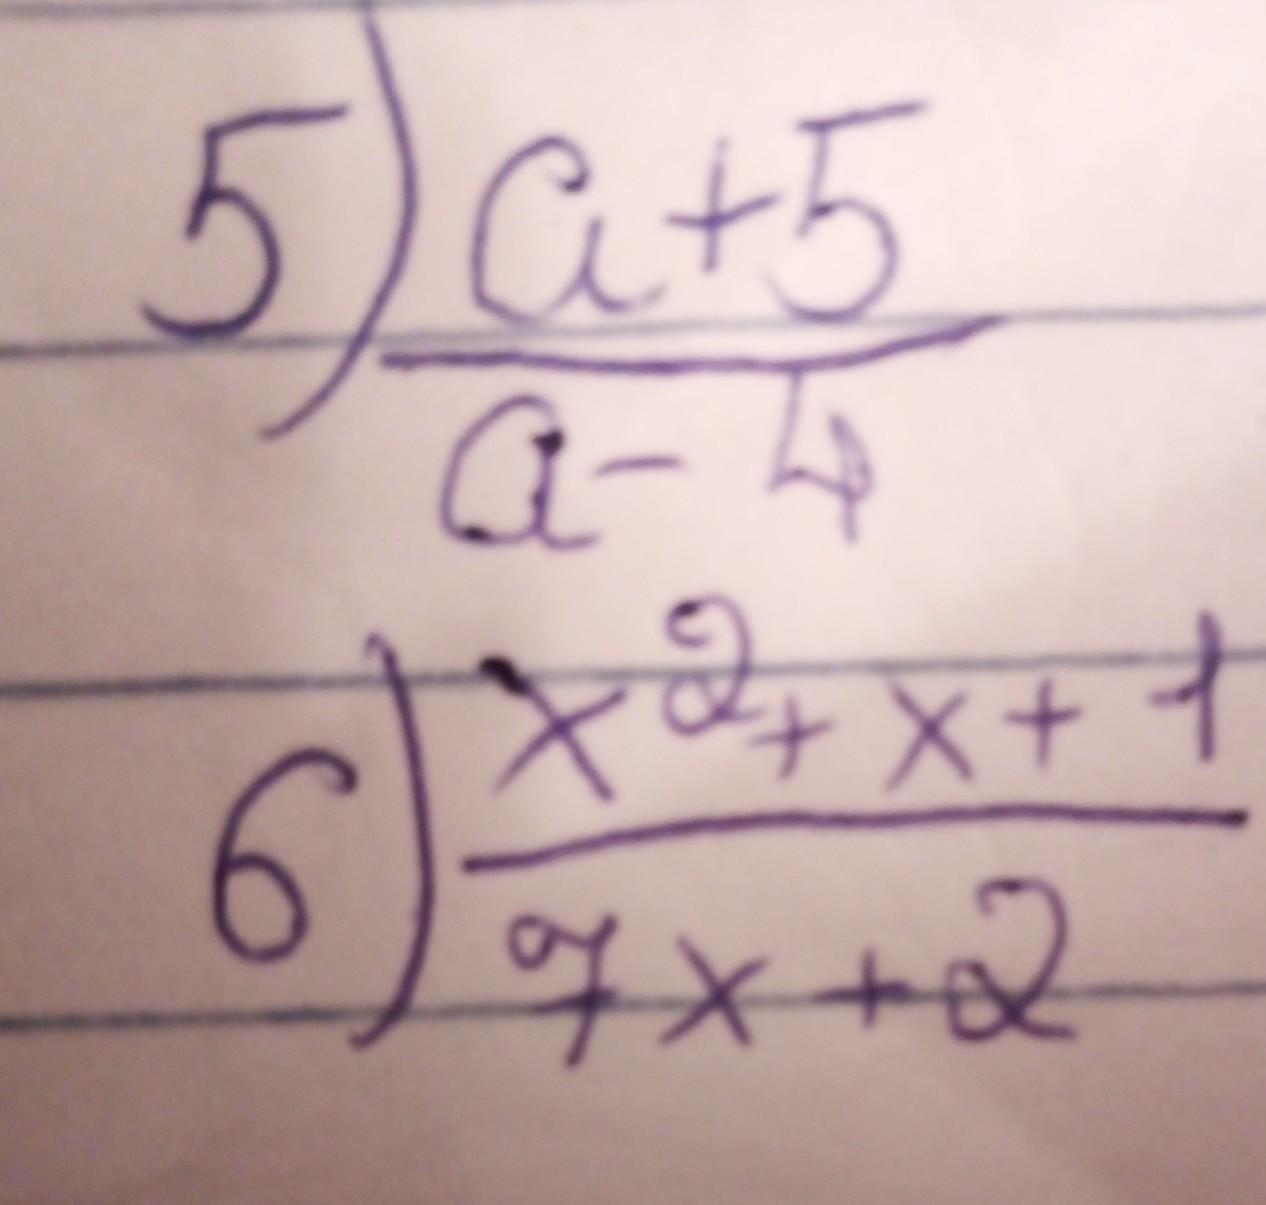 5) a+5
a-4
6) x²+x+1
7x+2